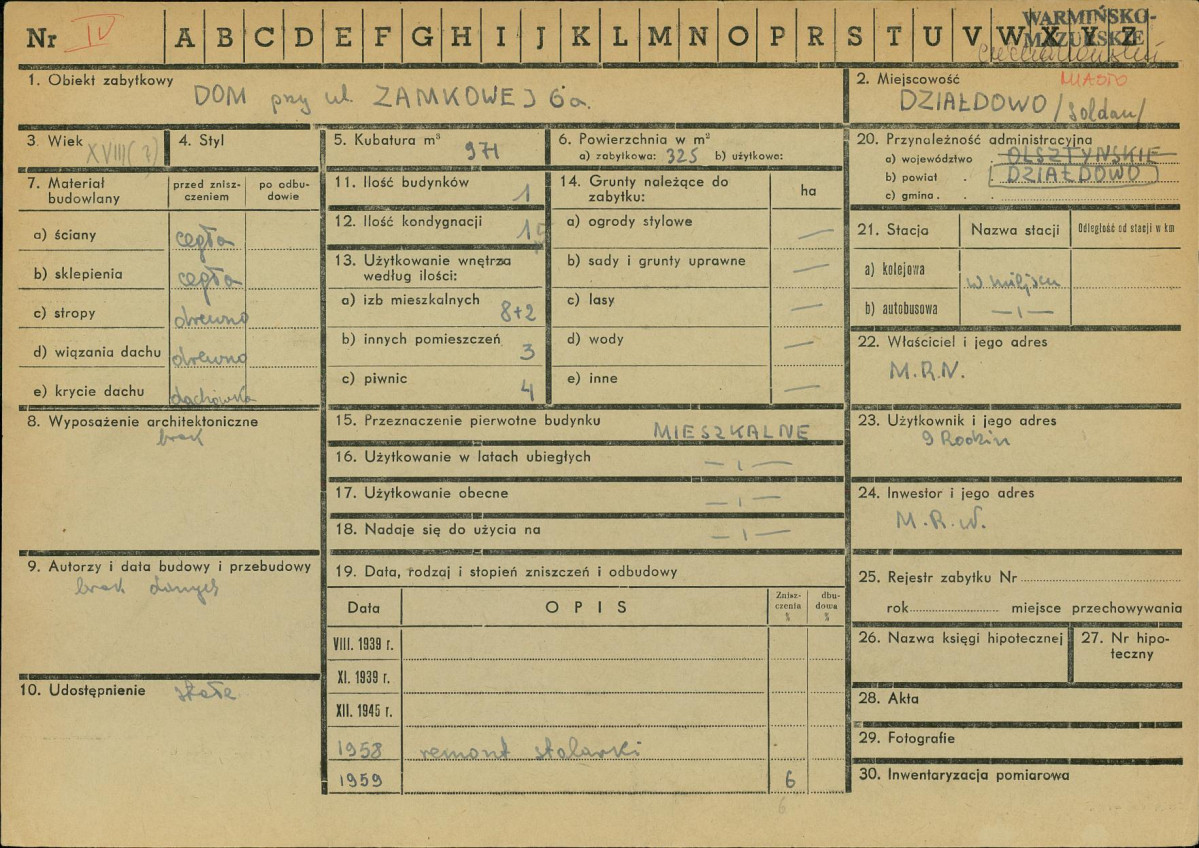 Nr IV A B C D E F G H I J K L M N O P R S T U V W X Y Z
WARMIŃSKO-
MAZURSKIE
1. Obiekt zabytkowy
DOM przy ul. ZAMKOWEJ 6a.
2. Miejscowość
MIASTO
DZIAŁDOWO /Soldau/
3. Wiek XVIII(?)
4. Styl
5. Kubatura m³ 971
6. Powierzchnia w m²
a) zabytkowa: 325 b) użytkowa:
7. Materiał budowlany
przed znisz-
czeniem
po odbu-
dowie
a) ściany cegła
b) sklepienia cegła
c) stropy drewno
d) wiązania dachu drewno
e) krycie dachu dachówka
8. Wyposażenie architektoniczne
brak
9. Autorzy i data budowy i przebudowy
brak danych
10. Udostępnienie stałe
11. Ilość budynków 1
12. Ilość kondygnacji 1
13. Użytkowanie wnętrza
według ilości:
a) izb mieszkalnych 8+2
b) innych pomieszczeń 3
c) piwnic 4
14. Grunty należące do
zabytku:
ha
a) ogrody stylowe —
b) sady i grunty uprawne —
c) lasy —
d) wody —
e) inne —
15. Przeznaczenie pierwotne budynku MIESZKALNE
16. Użytkowanie w latach ubiegłych —ı—
17. Użytkowanie obecne —ı—
18. Nadaje się do użycia na —ı—
19. Data, rodzaj i stopień zniszczeń i odbudowy
Data
OPIS
Znisz-
czenia
%
dbu-
dowa
%
VIII. 1939 r.
XI. 1939 r.
XII. 1945 r.
1958 remont stolarki
1959 6
6
20. Przynależność administracyjna
a) województwo . OLSZTYŃSKIE
b) powiat . DZIAŁDOWO
c) gmina . .
21. Stacja
Nazwa stacji
Odległość od stacji w km
a) kolejowa w miejscu
b) autobusowa —ı—
22. Właściciel i jego adres
M.R.N.
23. Użytkownik i jego adres
9 Rodzin
24. Inwestor i jego adres
M.R.N.
25. Rejestr zabytku Nr
rok miejsce przechowywania
26. Nazwa księgi hipotecznej
27. Nr hipo-
teczny
28. Akta
29. Fotografie
30. Inwentaryzacja pomiarowa